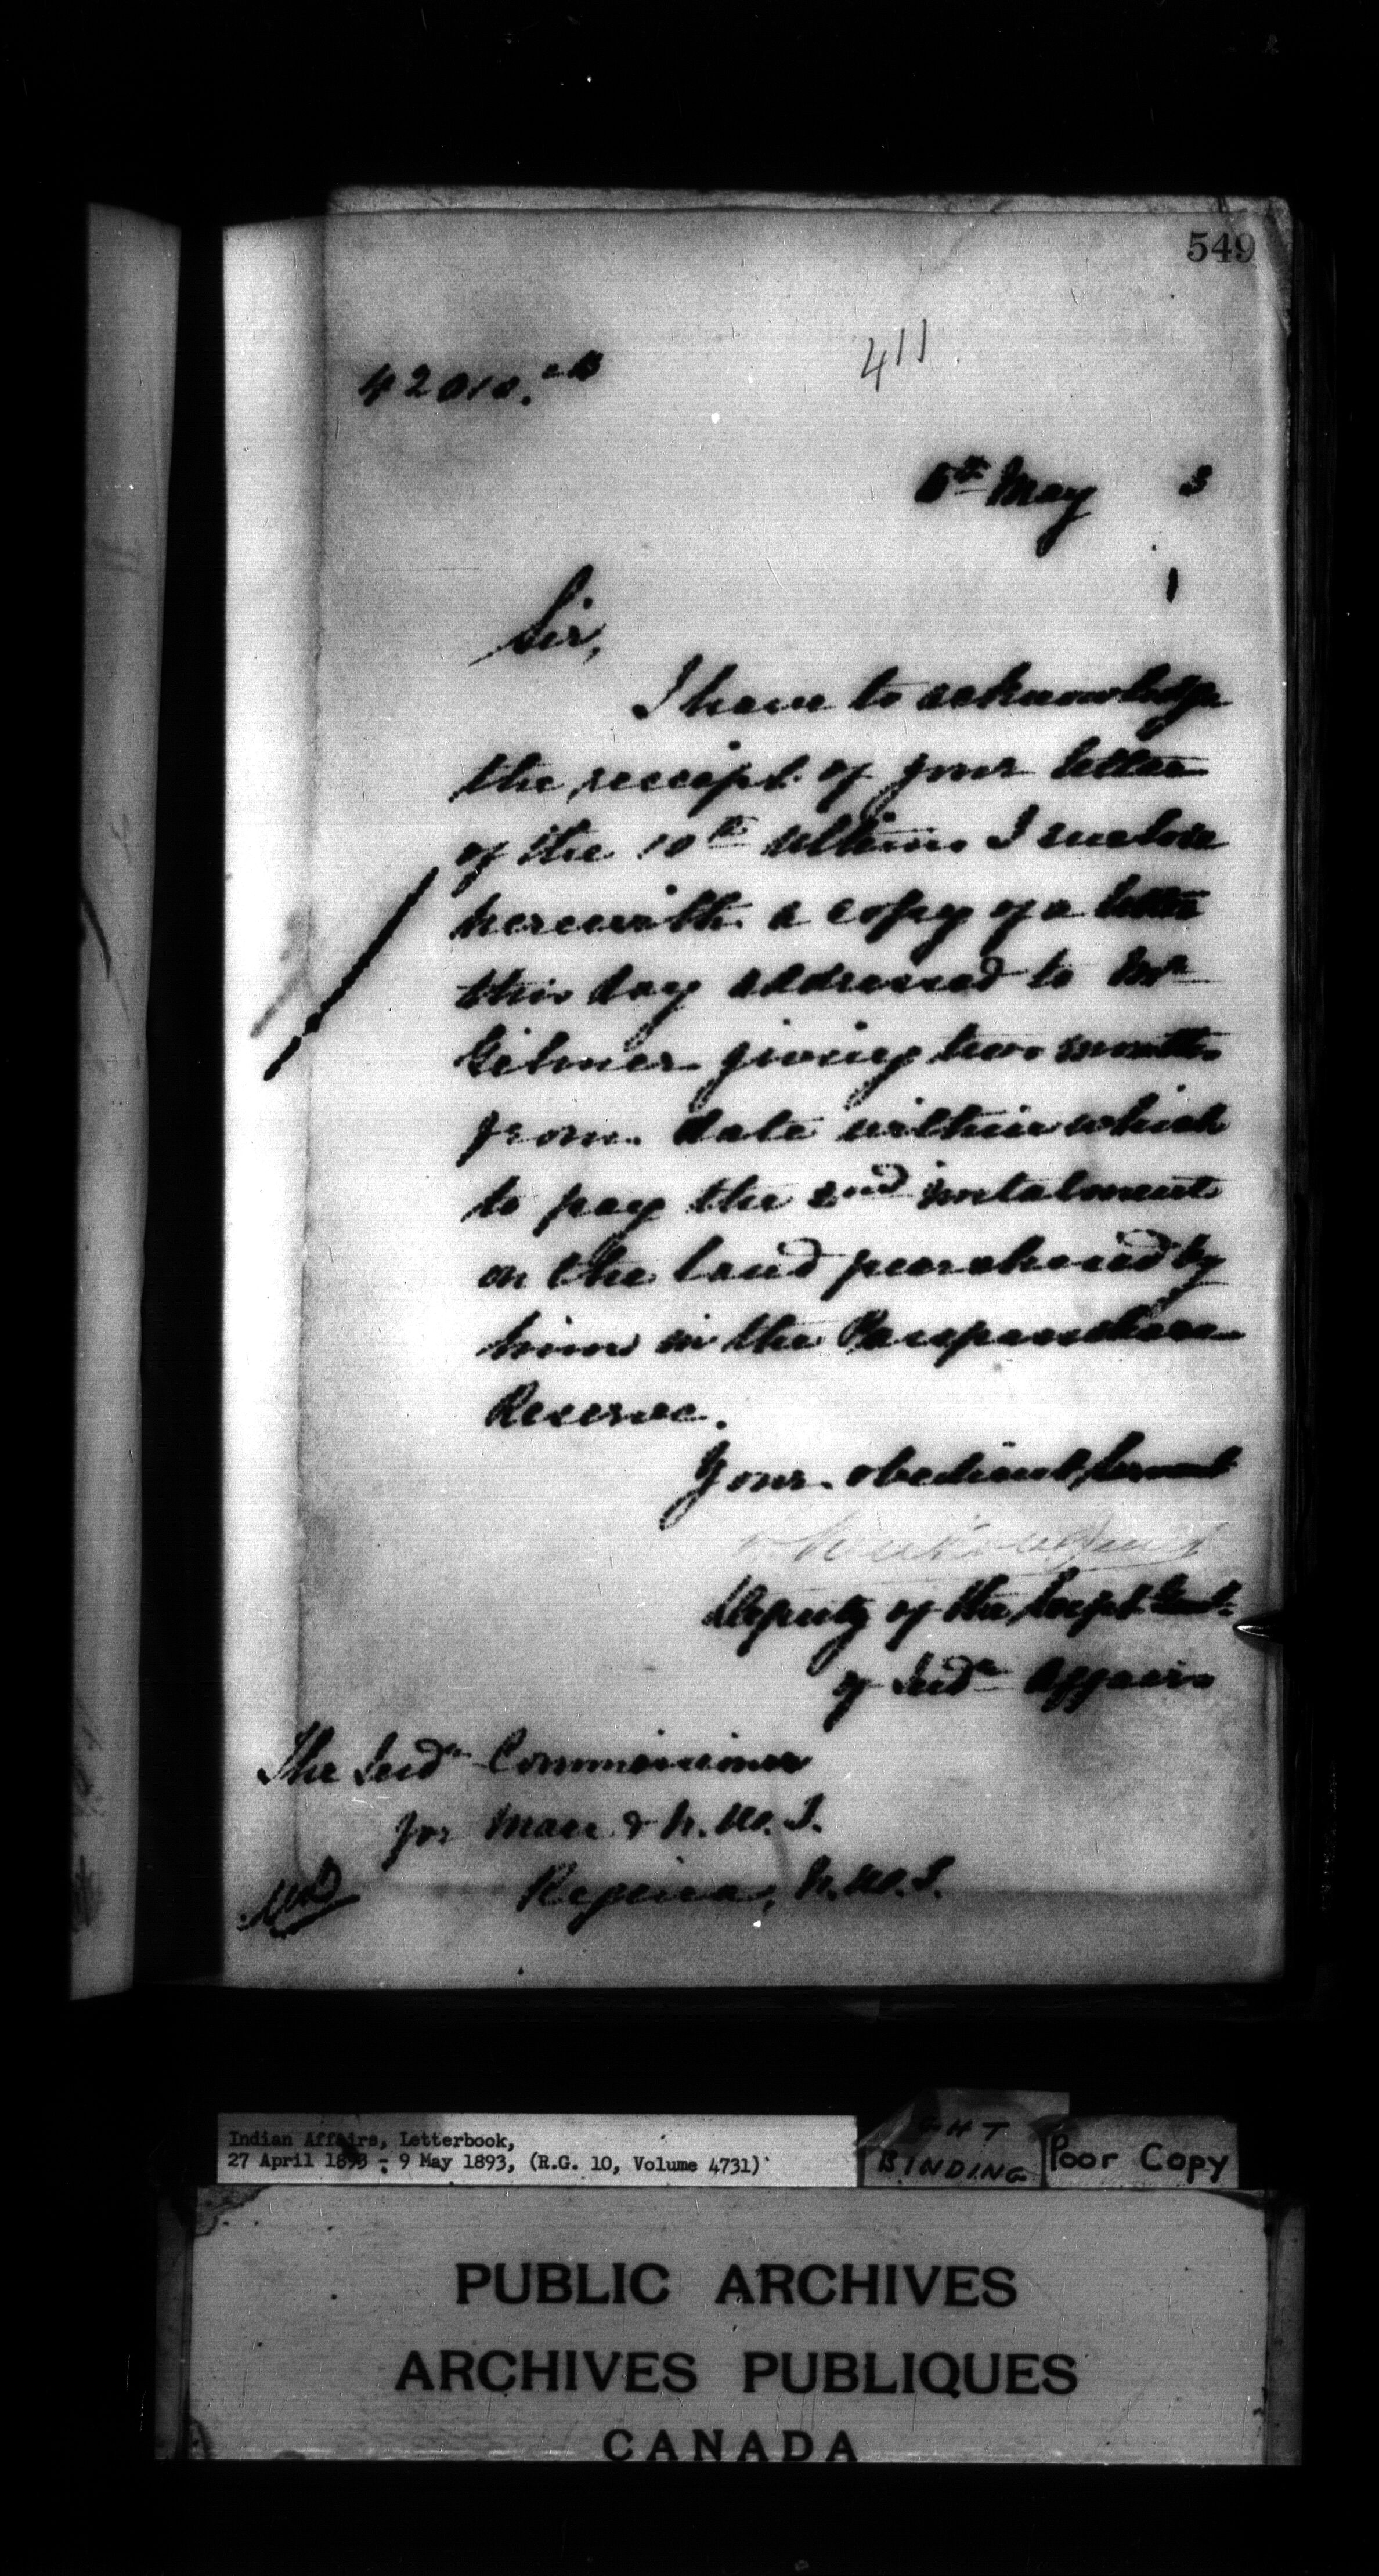 549
411
5th May 3
1
Sir,
I have to acknowledge
the receipt of your letter
of the 10th ultimo. I enclose
herewith a copy of a letter
this day addressed to Mr
giving two months
from date within which
to pay the 2nd instalment
on the land purchased by
him in the
Reserve.
Your obedient servant
Deputy of the Supt. Genl.
of Indn Affairs
The Indn Commissioner
for Man & N.W.T.
Regina, N.W.T.
Indian Affairs, Letterbook,
27 April 1893 - 9 May 1893, (R.G. 10, Volume 4731)
GHT
BINDING
Poor Copy
PUBLIC ARCHIVES
ARCHIVES PUBLIQUES
CANADA